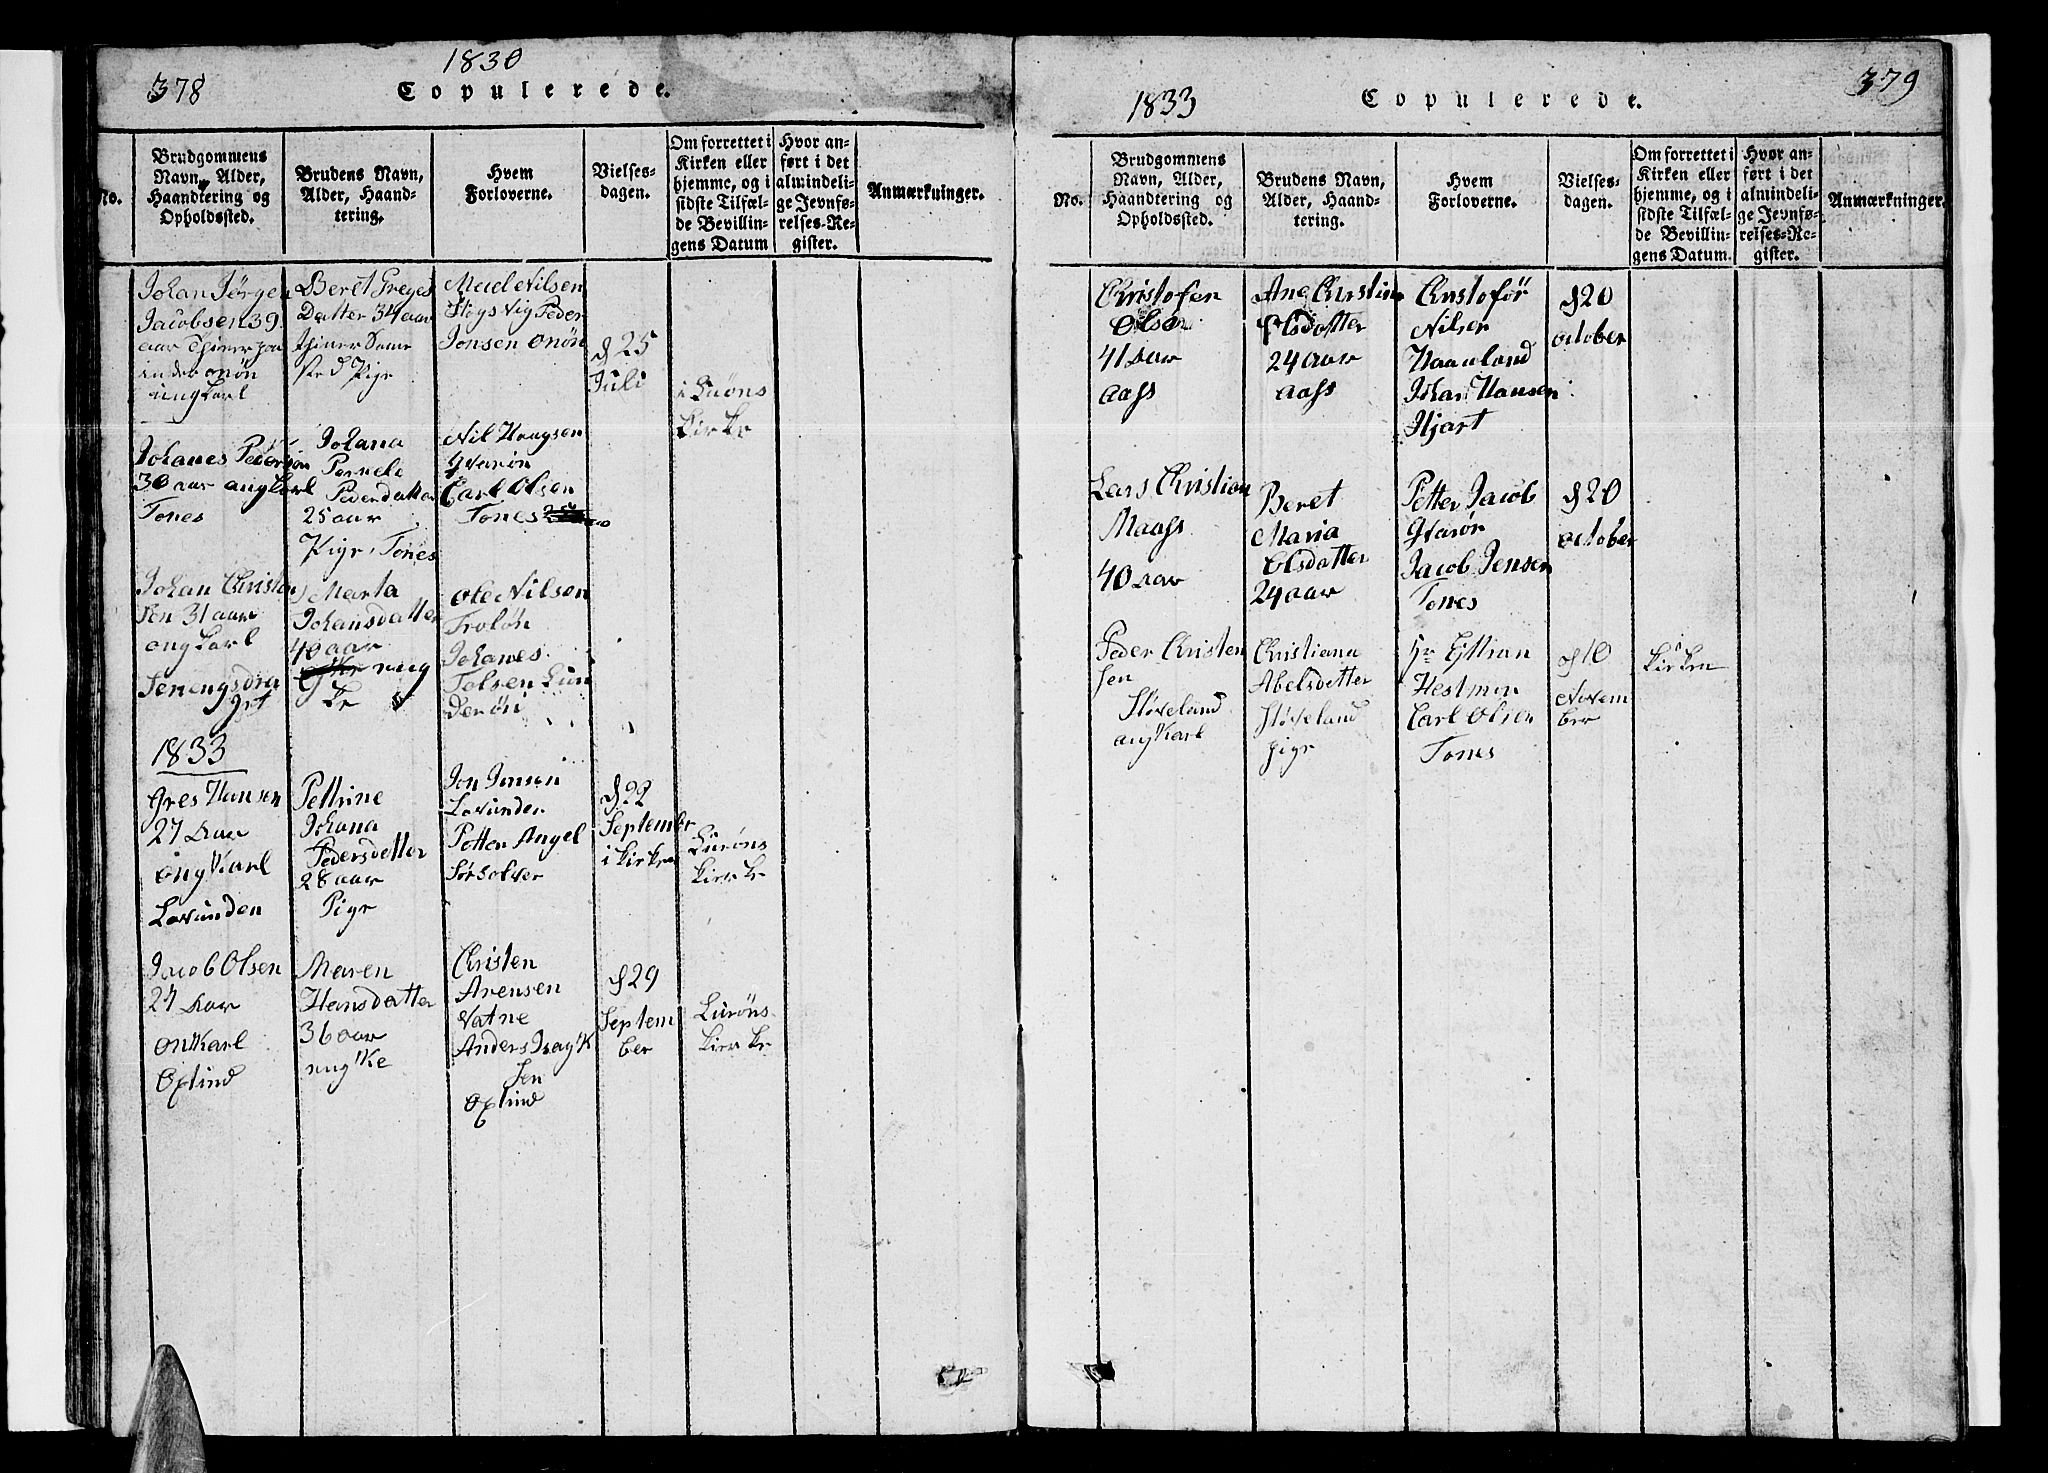 378
1830
Copulerede.
No.
Brudgommens
Navn, Alder,
Haandtering og
Opholdssted.
Brudens Navn,
Alder, Haand-
tering.
Hvem
Forloverne.
Vielses-
dagen.
Om forrettet i
Kirken eller
hjemme, og i
sidste Tilfæl-
de Bevillin-
gens Datum
Hvor an-
ført i det
almindeli-
ge Jevnfø-
relses-Re-
gister.
Anmærkninger.
Johan Jørgen
Jacobsen 39
aar
onøn
ungkarl
Beret Greges
Datter 34 aar
Pige
Nilsen
Peder
Jonsen onøn
d 25
Juli
i Luøns
Kirke
Johanes Pedersøn
30 aar ongkarl
Tones
Johana
Pernele
Pedersdatter
25 aar
Pige Tones
Nil Haagsen
Qvarøn
Carl Olsen
Tones
Johan Christen
sen 31 aar
ongkarl
Marta
Johansdatter
40 aar
ung
ke
ole Nilsen
Froløn
Johanes
Tolsen Lun
derøn
1833
Gres Hansen
27 Aar
ongKarl
Lovunden
Pettrine
Johana
Pedersdetter
28 aar
Pige
Jon Jensen
Lovunder
Petter Angel
Sørsolver
d 22
September
i kirken
Lurøns
kierke
Jacob Olsen
27 Aar
onKarl
Oxtind
Maren
Hansdatter
36 aar
engke
Christen
Arensen
Vatne
Anders Isag
sen
Oxtind
d 29
Septem
ber
Lurøns
kierke
1833
Copulerede.
379
No.
Brudgommens
Navn, Alder,
Haandtering og
Opholdssted.
Brudens Navn,
Alder, Haand-
tering.
Hvem
Forloverne.
Vielses-
dagen.
Om forrettet i
Kirken eller
hjemme, og i
sidste Tilfæl-
de Bevillin-
gens Datum.
Hvor an-
ført i det
almindeli-
ge Jevnfø-
relses-Re-
gister.
Anmærkninger.
Christofer
Olsen
41 aar
aass
Ane Christina
Olsdatter
24 aar
aass
Christofør
Nilsen
Haanland
Johan Hansen
Hjart
d 20
october
Lars Christian
Maass
40 aar
Beret
Maria
Olsdatter
24 aar
Petter Jacob
Qvarør
Jacob Jensen
Tones
d 20
october
Peder Christen
sen
Støveland
ongKarl
Christiana
Abelsdetter
Støveland
pige
Hestmon
Carl Olsen
Tones
d 10
Novem
ber
i
kirken